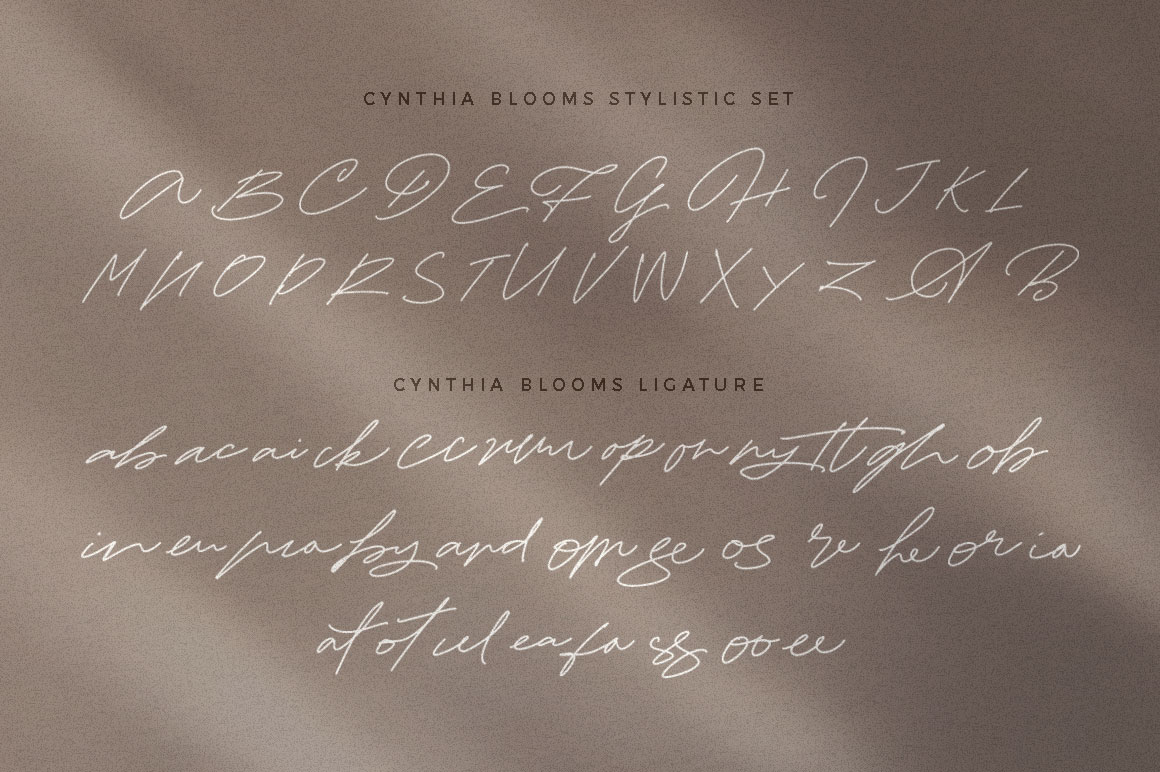 CYNTHIA BLOOMS STYLISTIC SET
A B C D E F G H I J K L
M N O P R S T U V W X Y Z A B
CYNTHIA BLOOMS LIGATURE
ab ac ai ck cc op on ny tt gh ob
in en by and ge os re he or ia
at ot el ea fa ss oo ee